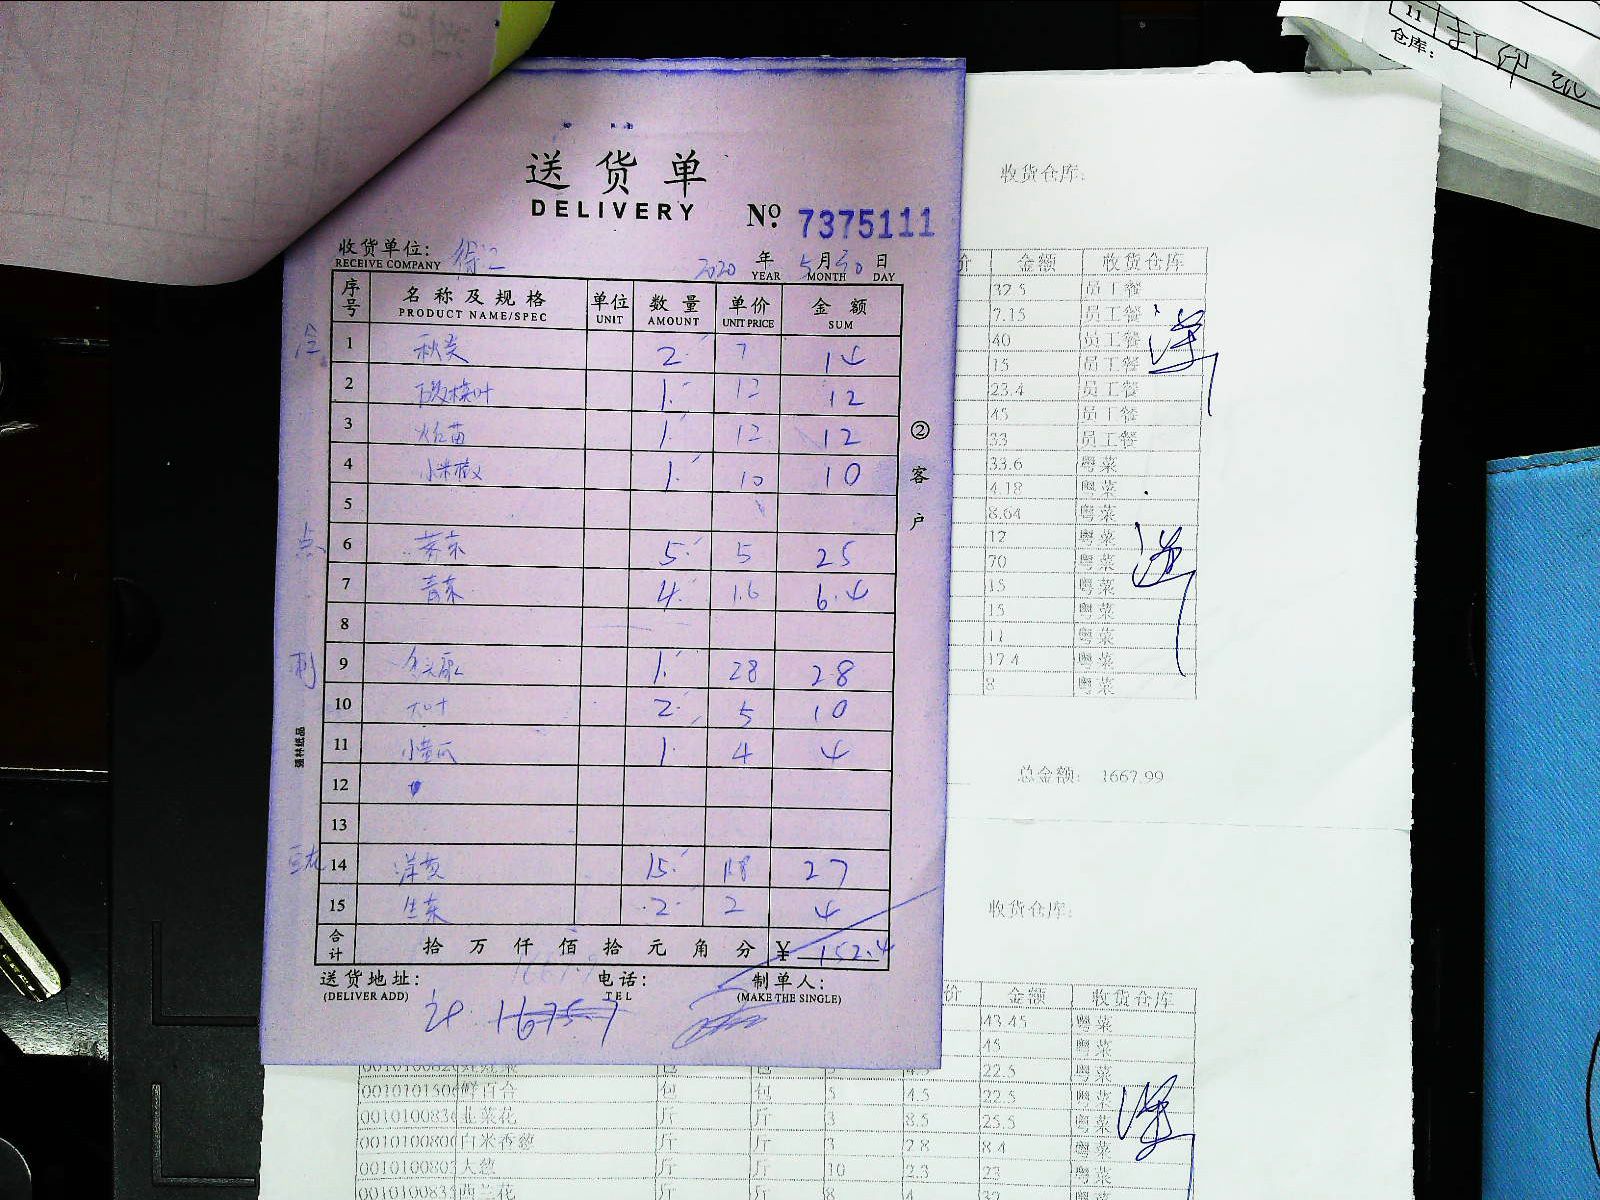 11 打印纸
仓库:
送货单
DELIVERY
№ 7375111
收货单位:
RECEIVE COMPANY
2020 年 5 月 30 日
YEAR MONTH DAY
序号 名称及规格 单位 数量 单价 金额
PRODUCT NAME/SPEC UNIT AMOUNT UNIT PRICE SUM
1 秋葵 2 7 14
2 12 12
3 1 12 12
4 小米椒 1 10 10
5
6 5 5 25
7 青菜 4 1.6 6.4
8
9 1 28 28
10 大叶 2 5 10
11 小黄瓜 1 4 4
12
13
14 15 1.8 27
15 生菜 2 2 4
合计 拾 万 仟 佰 拾 元 角 分 ¥ 152.4
送货地址: 电话: 制单人:
(DELIVER ADD) TEL (MAKE THE SINGLE)
计 1675.7
② 客户
强林纸品
收货仓库:
价 金额 收货仓库
32.5 员工餐
7.15 员工餐
40 员工餐
15 员工餐
23.4 员工餐
45 员工餐
33 员工餐
33.6 粤菜
4.18 粤菜
8.64 粤菜
12 粤菜
70 粤菜
15 粤菜
15 粤菜
11 粤菜
17.4 粤菜
8 粤菜
总金额: 1667.99
收货仓库:
价 金额 收货仓库
43.45 粤菜
45 粤菜
22.5 粤菜
鲜百合 包 包 5 4.5 22.5 粤菜
韭菜花 斤 斤 3 8.5 25.5 粤菜
白米香葱 斤 斤 3 2.8 8.4 粤菜
大葱 斤 斤 10 2.3 23 粤菜
西兰花 斤 斤 8 4 32 粤菜